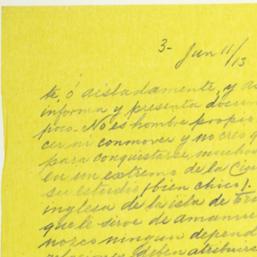 3- Jun 11/13
te ó aisladamente, y
informa y presenta docum
poco. No es hombre propio
cer ni conmover y no creo q
para conquistarse mucho
en un extremo de la Ciu
su estudio (bien chico).
inglesa de la isla de
que le sirve de amanue
nozco ningun depend
deben atribuirs